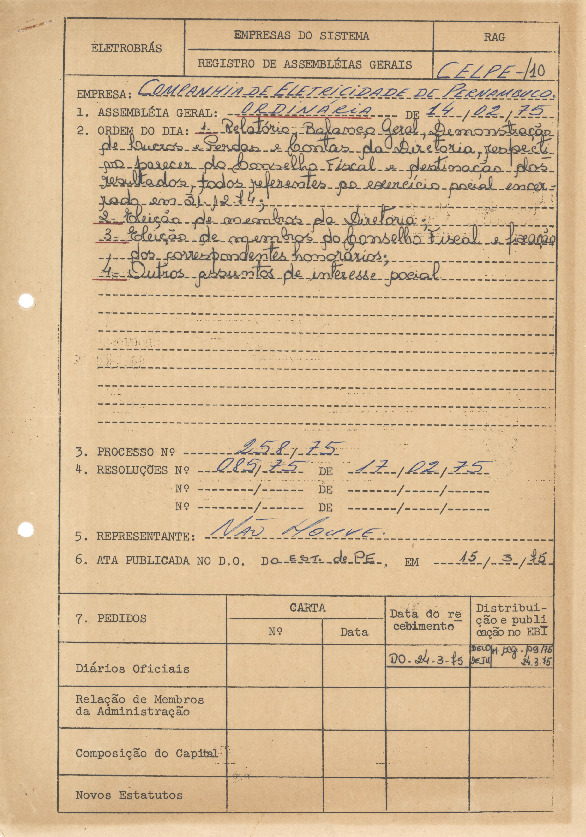 ELETROBRÁS
EMPRESAS DO SISTEMA
RAG
REGISTRO DE ASSEMBLÉIAS GERAIS
CELPE-/10
EMPRESA: COMPANHIA DE ELETRICIDADE DE PERNAMBUCO.
1. ASSEMBLÉIA GERAL: ORDINÁRIA DE 14/02/75
2. ORDEM DO DIA: 1- Relatório, Balanço Geral, Demonstração
de Lucros e Perdas e Contas da Diretoria, respecti
vo parecer do Conselho Fiscal e destinação dos
resultados, todos referentes ao exercício social encer-
rado em 31.12.74;
2- Eleição de membros da Diretoria;
3- Eleição de membros do Conselho Fiscal e fixação
dos correspondentes honorários;
4- Outros assuntos de interesse social
3. PROCESSO Nº 258/75
4. RESOLUÇÕES Nº 085/75 DE 17/02/75
Nº ------/----- DE -----/-----/------
Nº ------/----- DE -----/-----/------
5. REPRESENTANTE: NÃO HOUVE.
6. ATA PUBLICADA NO D.O. DO EST. de PE, EM 15/3/75
7. PEDIDOS
CARTA
Nº
Data
Data do re
cebimento
Distribui-
ção e publi
cação no EBI
Diários Oficiais
DO-24-3-75
24.3.75
Relação de Membros
da Administração
Composição do Capital
Novos Estatutos